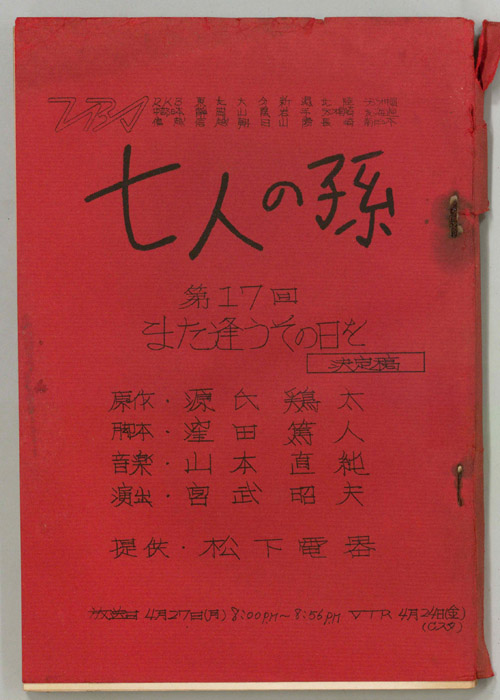 TBS
七人の孫
第17回
また逢うその日を
決定稿
原作・源氏鶏太
脚本・窪田篤人
音楽・山本直純
演出・宮武昭夫
提供・松下電器
放送日 4月27日(月) 8:00pm～8:56pm VTR 4月24日(金)
(Cスタ)